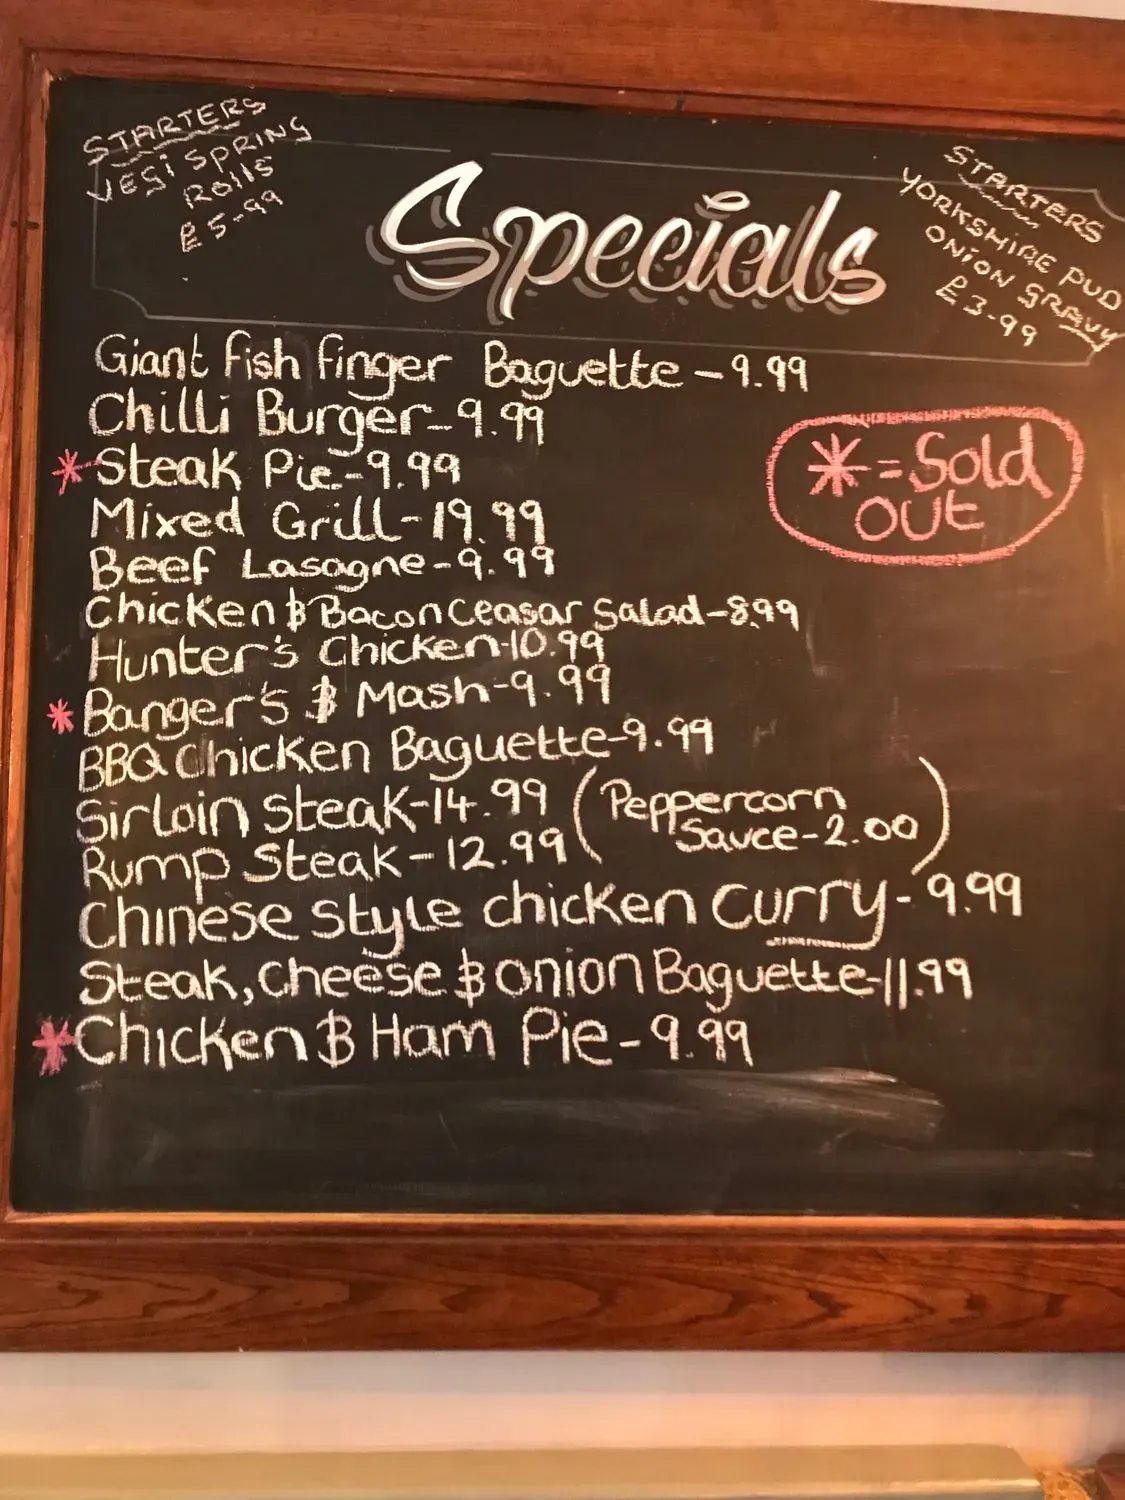 STARTERS
VEGi SPRING
ROllS
£5-99
Specials
STARTERS
YORKSHIRE PUD
ONiON GRAVY
£3-99
Giant fish finger Baguette - 9.99
Chilli Burger - 9.99
* Steak Pie - 9.99
Mixed Grill - 19.99
Beef Lasagne - 9.99
Chicken & Bacon Ceasar Salad - 8.99
Hunter's Chicken - 10.99
* Banger's & Mash - 9.99
BBQ Chicken Baguette - 9.99
Sirloin Steak - 14.99
Rump Steak - 12.99
(Peppercorn
Sauce - 2.00)
Chinese Style chicken Curry - 9.99
Steak, Cheese & onion Baguette - 11.99
* Chicken & Ham Pie - 9.99
* = Sold
OUt